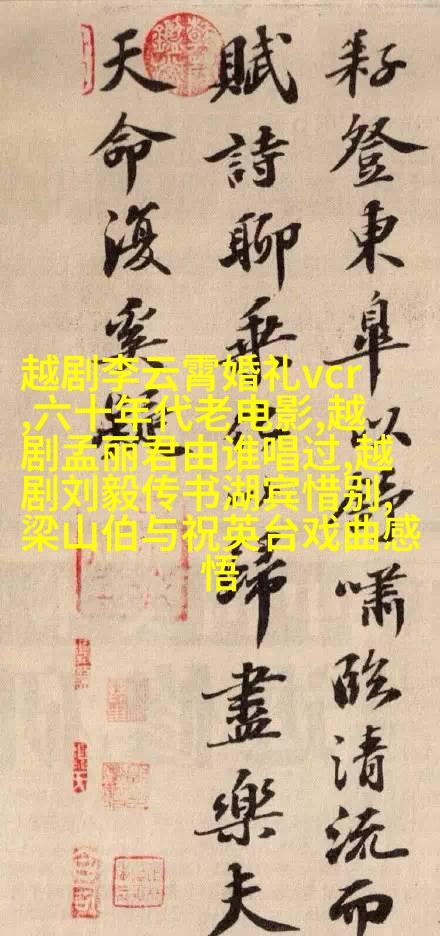 耔登東皐以舒嘯臨清流而
賦詩聊乘化歸盡樂夫
天命復奚疑
越剧李云霄婚礼vcr
,六十年代老电影,越
剧孟丽君由谁唱过,越
剧刘毅传书湖宾惜别,
梁山伯与祝英台戏曲感
悟